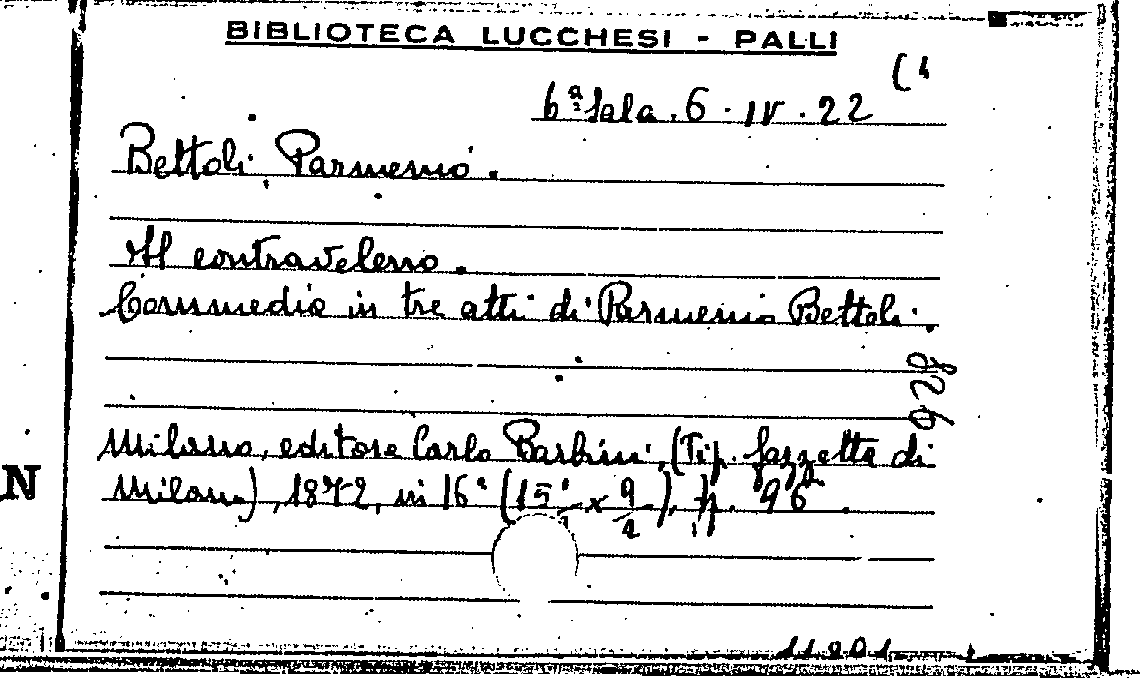 BIBLIOTECA LUCCHESI - PALLI
(1
6ª Sala. 6. IV. 22
Bettoli Parmenio.
Il contraveleno.
Commedia in tre atti di Parmenio Bettoli.
928
Milano, editore Carlo Barbini, (Tip. Gazzetta di
Milano), 1872, in 16° (15 x 9), pp. 96.
N
11.001